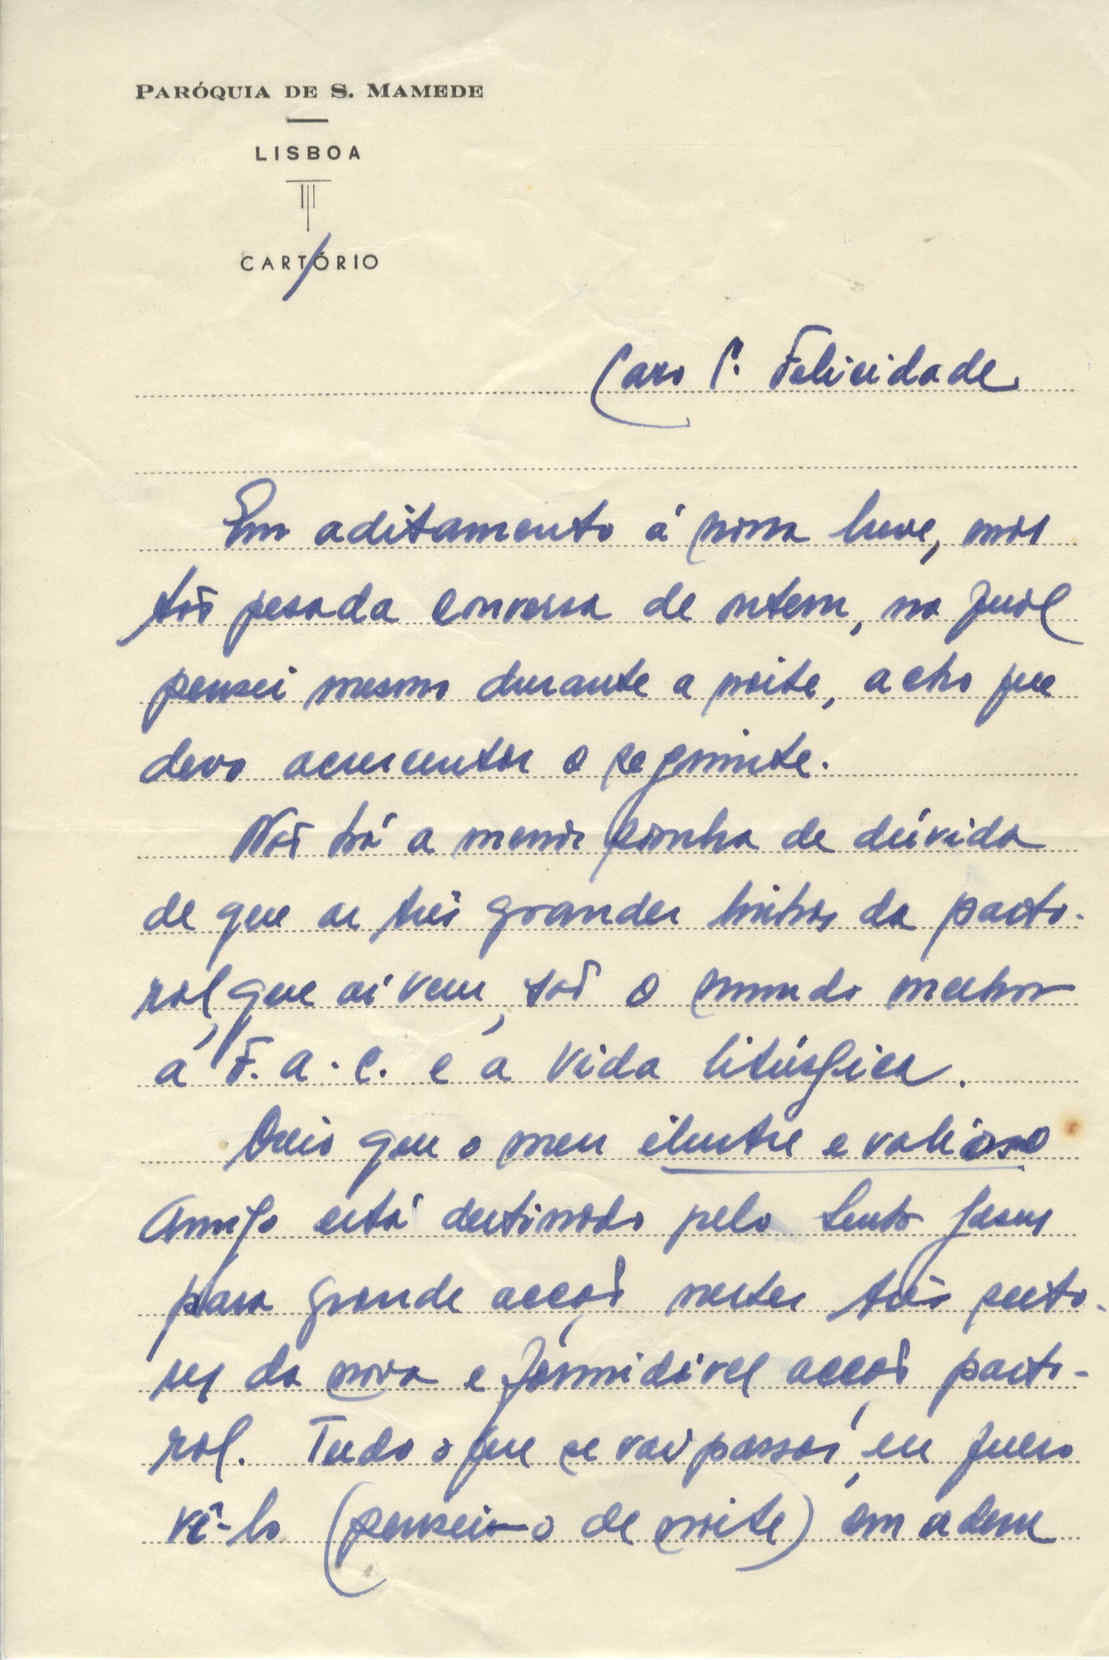 PARÓQUIA DE S. MAMEDE
LISBOA
CARTÓRIO
Caro P. Felicidade
Em aditamento á nossa breve, mas
tão pesada conversa de ontem, na qual
pensei mesmo durante a noite, acho que
devo acrescentar o seguinte.
Não há a menor sombra de dúvida
de que as três grandes linhas da pasto-
ral, que aí vem, são o mundo melhor
a F.A.C. e a vida litúrgica.
Creio que o meu ilustre e valioso
Amigo está destinado pelo Senhor Jesus
para grande acção nestes três secto-
res da nova e formidável acção pasto-
ral. Tudo o que se vai passar, eu quero
vê-lo (pensei-o de noite) em adem